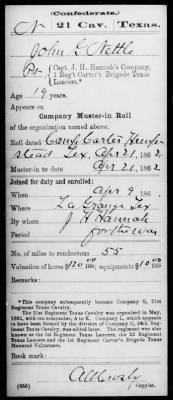 (Confederate.)
N 21 Cav. Texas.
John G Nettle
Pvt., Capt. J. H. Hannah's Company,
1 Reg't Carter's Brigade Texas
Lancers.*
Age 19 years.
Appears on
Company Muster-in Roll
of the organization named above.
Roll dated Camp Carter Hemp-
stead Tex, Apr 21, 1862.
Muster-in to date Apr 21, 1862
Joined for duty and enrolled:
When Apr 9, 186 .
Where La Grange Tex
By whom J. H. Hannah
Period for the war
No. of miles to rendezvous 55
Valuation of horse $120 00/100 equipments $10 00/100
Remarks:
*This company subsequently became Company G, 21st
Regiment Texas Cavalry.
The 21st Regiment Texas Cavalry was organized in May,
1862, with ten companies, A to K. Company L, which appears
to have been formed by the division of Company C, 24th Regi-
ment Texas Cavalry, was added later. The regiment was also
known as the 1st Regiment Texas Lancers, the 2d Regiment
Texas Lancers and the 1st Regiment Carter's Brigade Texas
Mounted Volunteers.
Book mark:
(635)
Copyist.